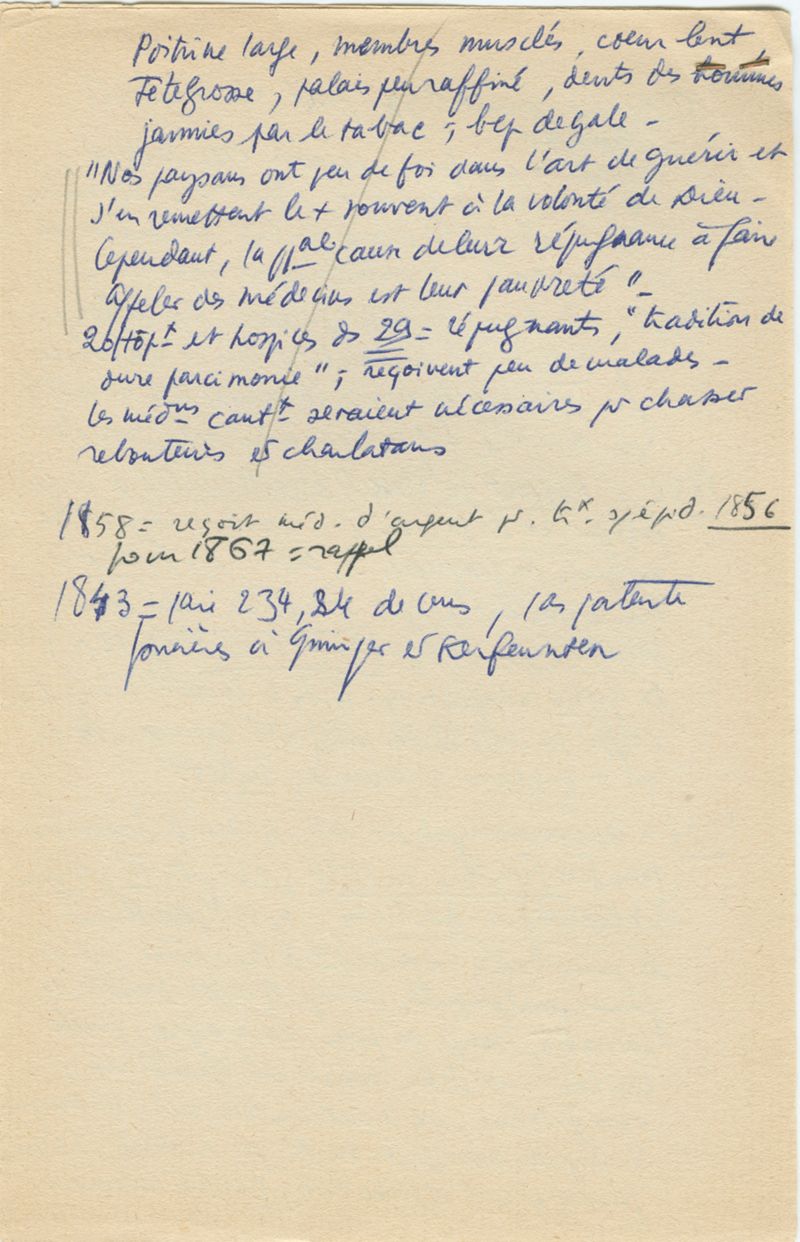 Poitrine large, membres musclés, coeur lent
Tête grosse, palais peu raffiné, dents des hommes
jaunies par le tabac ; bcp de gale -
"Nos paysans ont peu de foi dans l'art de guérir et
s'en remettent le + souvent à la volonté de Dieu -
Cependant, la ppale cause de leur répugnance à faire
appeler des médecins est leur pauvreté" -
20 hôpt et hospices ds 29 = répugnants, "tradition de
dure parcimonie" ; reçoivent peu de malades -
Les médns cantx seraient nécessaires pr chasser
rebouteurs et charlatans
1858 = reçoit méd. d'argent pr. tx. s/épid. 1856
pour 1867 = rappel
1843 = paie 234, de cens, pas patente
foncières à Quimper et Kerfeunten